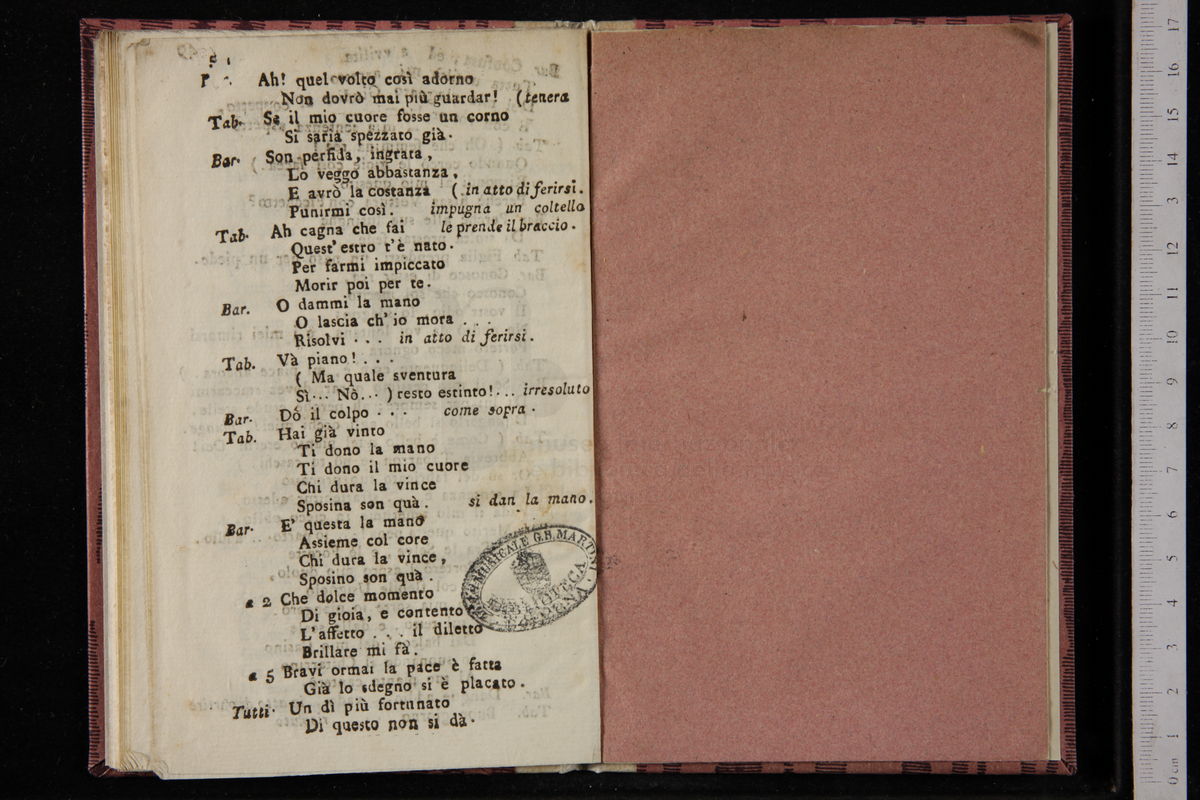 Ah! quel volto così adorno
Non dovrò mai più guardar! (tenera
Tab. Se il mio cuore fosse un corno
Si saria spezzato già.
Bar. Son perfida, ingrata,
Lo veggo abbastanza,
E avrò la costanza (in atto di ferirsi.
Punirmi così. impugna un coltello
Tab. Ah cagna che fai le prende il braccio.
Quest' estro t'è nato.
Per farmi impiccato
Morir poi per te.
Bar. O dammi la mano
O lascia ch' io mora . . .
Risolvi . . . in atto di ferirsi.
Tab. Và piano! . . .
( Ma quale sventura
Sì... Nò... ) resto estinto!... irresoluto
Bar. Dó il colpo . . . come sopra.
Tab. Hai già vinto
Ti dono la mano
Ti dono il mio cuore
Chi dura la vince
Sposina son quà. si dan la mano.
Bar. E' questa la mano
Assieme col core
Chi dura la vince,
Sposino son quà.
a 2 Che dolce momento
Di gioia, e contento
L'affetto . . . il diletto
Brillare mi fà.
a 5 Bravi ormai la pace è fatta
Già lo sdegno si è placato.
Tutti. Un dì più fortunato
Di questo non si dà.
MUSICALE G.B. MARTINI
0 cm 1 2 3 4 5 6 7 8 9 10 11 12 13 14 15 16 17